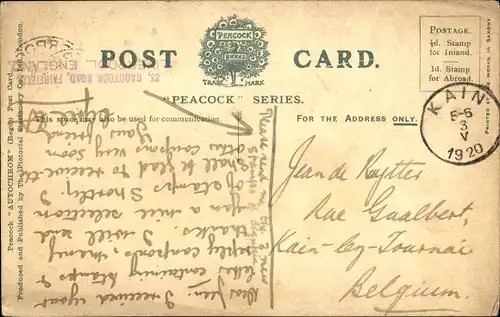 POST CARD.
PEACOCK
TRADE MARK
"PEACOCK" SERIES.
This space may also be used for communication.
FOR THE ADDRESS ONLY.
POSTAGE.
½d. Stamp
for Inland.
1d. Stamp
for Abroad.
KAIN
5-6
3
V
1920
Jean de Ruytter
Rue Gualbert,
Kain-lez-Tournai
Belgium.
Dear Jean: I received your
letter containing stamps &
reply coupons, many
thanks. I will send
you a nice selection
of stamps shortly. I
shall be glad to receive the
other coupons very soon
Your friend
Please send me the 2 new
25, RADSTOCK ROAD, FAIRFIELD
ENGLAND.
Peacock "AUTOCHROM" (Regd.) Post Card.
Produced and Published by The Pictorial Stationery Co., Ltd., London.